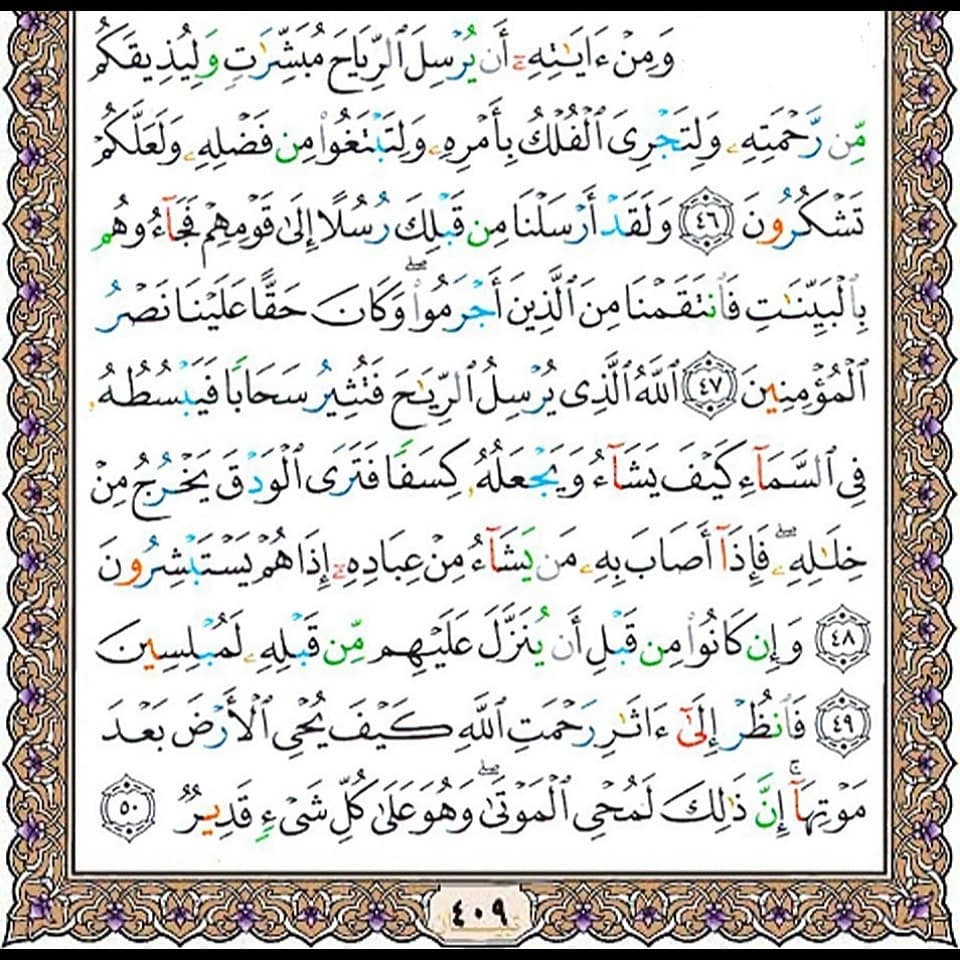 وَمِنْ ءَايَٰتِهِۦٓ أَن يُرْسِلَ ٱلرِّيَاحَ مُبَشِّرَٰتٍ وَلِيُذِيقَكُم
مِّن رَّحْمَتِهِۦ وَلِتَجْرِىَ ٱلْفُلْكُ بِأَمْرِهِۦ وَلِتَبْتَغُوا۟ مِن فَضْلِهِۦ وَلَعَلَّكُمْ
تَشْكُرُونَ ٤٦ وَلَقَدْ أَرْسَلْنَا مِن قَبْلِكَ رُسُلًا إِلَىٰ قَوْمِهِمْ فَجَآءُوهُم
بِٱلْبَيِّنَٰتِ فَٱنتَقَمْنَا مِنَ ٱلَّذِينَ أَجْرَمُوا۟ ۖ وَكَانَ حَقًّا عَلَيْنَا نَصْرُ
ٱلْمُؤْمِنِينَ ٤٧ ٱللَّهُ ٱلَّذِى يُرْسِلُ ٱلرِّيَٰحَ فَتُثِيرُ سَحَابًا فَيَبْسُطُهُۥ
فِى ٱلسَّمَآءِ كَيْفَ يَشَآءُ وَيَجْعَلُهُۥ كِسَفًا فَتَرَى ٱلْوَدْقَ يَخْرُجُ مِنْ
خِلَٰلِهِۦ ۖ فَإِذَآ أَصَابَ بِهِۦ مَن يَشَآءُ مِنْ عِبَادِهِۦٓ إِذَا هُمْ يَسْتَبْشِرُونَ
٤٨ وَإِن كَانُوا۟ مِن قَبْلِ أَن يُنَزَّلَ عَلَيْهِم مِّن قَبْلِهِۦ لَمُبْلِسِينَ
٤٩ فَٱنظُرْ إِلَىٰٓ ءَاثَٰرِ رَحْمَتِ ٱللَّهِ كَيْفَ يُحْىِ ٱلْأَرْضَ بَعْدَ
مَوْتِهَآ ۚ إِنَّ ذَٰلِكَ لَمُحْىِ ٱلْمَوْتَىٰ ۖ وَهُوَ عَلَىٰ كُلِّ شَىْءٍ قَدِيرٌ ٥٠
٤٠٩